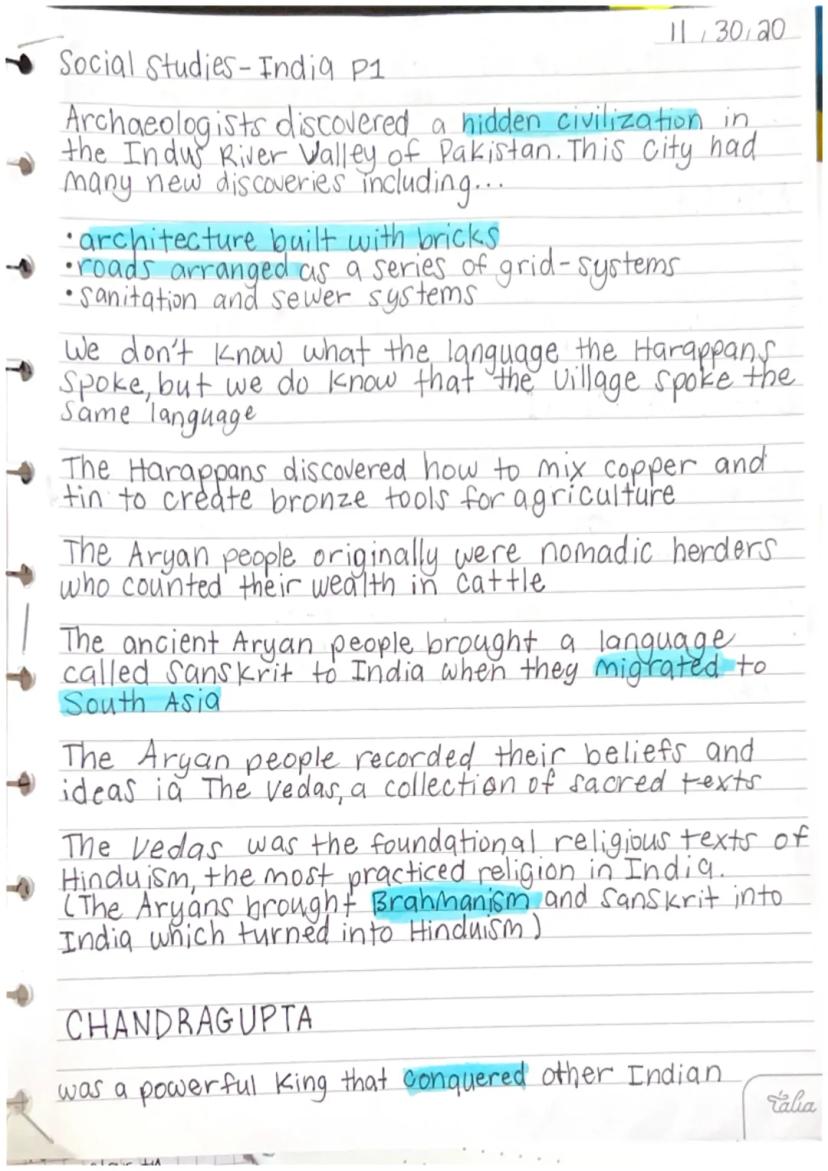 11/30/20
Social Studies - India P1
Archaeologists discovered a hidden civilization in
the Indus River Valley of Pakistan. This city had
many new discoveries including...
• architecture built with bricks
• roads arranged as a series of grid-systems
• sanitation and sewer systems
We don't know what the language the Harappans
spoke, but we do know that the village spoke the
same language
The Harappans discovered how to mix copper and
tin to create bronze tools for agriculture
The Aryan people originally were nomadic herders
who counted their wealth in cattle
The ancient Aryan people brought a language
called Sanskrit to India when they migrated to
South Asia
The Aryan people recorded their beliefs and
ideas ia The Vedas, a collection of sacred texts
The Vedas was the foundational religious texts of
Hinduism, the most practiced religion in India.
(The Aryans brought Brahmanism and Sanskrit into
India which turned into Hinduism)
CHANDRAGUPTA
was a powerful King that conquered other Indian
Talia